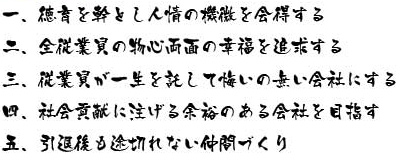 一、徳育を幹とし人情の機微を会得する
二、全従業員の物心両面の幸福を追求する
三、従業員が一生を託して悔いの無い会社にする
四、社会貢献に注げる余裕のある会社を目指す
五、引退後も途切れない仲間づくり